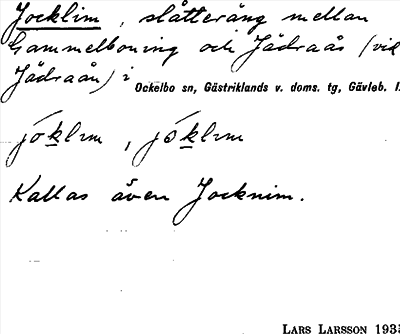 Jocklim, slåtteräng mellan
Gammelboning och Jädraås (vid
Jädraån) i
Ockelbo sn, Gästriklands v. doms. tg, Gävleb. l.
jòklɩm, jóklɩm
Kallas även Jocknim.
LARS LARSSON 1935